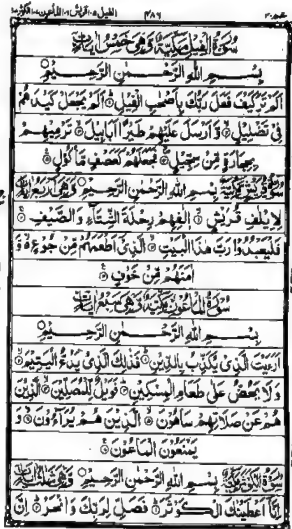 الفيل ١٠٥ قريش ١٠٦ الماعون ١٠٧ الكوثر ١٠٨ ٤٨٦ عم ٣٠
سُوْرَةُ الْفِيْلِ مَكِّيَّةٌ وَّهِيَ خَمْسُ اٰيَاتٍ
بِسْمِ اللهِ الرَّحْمٰنِ الرَّحِيْمِ
اَلَمْ تَرَ كَيْفَ فَعَلَ رَبُّكَ بِاَصْحٰبِ الْفِيْلِ اَلَمْ يَجْعَلْ كَيْدَهُمْ
فِيْ تَضْلِيْلٍ وَّاَرْسَلَ عَلَيْهِمْ طَيْرًا اَبَابِيْلَ تَرْمِيْهِمْ
بِحِجَارَةٍ مِّنْ سِجِّيْلٍ فَجَعَلَهُمْ كَعَصْفٍ مَّاْكُوْلٍ
سُوْرَةُ قُرَيْشٍ مَكِّيَّةٌ بِسْمِ اللهِ الرَّحْمٰنِ الرَّحِيْمِ وَّهِيَ اَرْبَعُ اٰيَاتٍ
لِاِيْلٰفِ قُرَيْشٍ اٖلٰفِهِمْ رِحْلَةَ الشِّتَآءِ وَالصَّيْفِ
فَلْيَعْبُدُوْا رَبَّ هٰذَا الْبَيْتِ الَّذِيْٓ اَطْعَمَهُمْ مِّنْ جُوْعٍ وَّ
اٰمَنَهُمْ مِّنْ خَوْفٍ
سُوْرَةُ الْمَاعُوْنِ مَكِّيَّةٌ وَّهِيَ سَبْعُ اٰيَاتٍ
بِسْمِ اللهِ الرَّحْمٰنِ الرَّحِيْمِ
اَرَءَيْتَ الَّذِيْ يُكَذِّبُ بِالدِّيْنِ فَذٰلِكَ الَّذِيْ يَدُعُّ الْيَتِيْمَ
وَلَا يَحُضُّ عَلٰى طَعَامِ الْمِسْكِيْنِ فَوَيْلٌ لِّلْمُصَلِّيْنَ الَّذِيْنَ
هُمْ عَنْ صَلَاتِهِمْ سَاهُوْنَ الَّذِيْنَ هُمْ يُرَآءُوْنَ وَ
يَمْنَعُوْنَ الْمَاعُوْنَ
سُوْرَةُ الْكَوْثَرِ مَكِّيَّةٌ بِسْمِ اللهِ الرَّحْمٰنِ الرَّحِيْمِ وَّهِيَ ثَلٰثُ اٰيَاتٍ
اِنَّآ اَعْطَيْنٰكَ الْكَوْثَرَ فَصَلِّ لِرَبِّكَ وَانْحَرْ اِنَّ